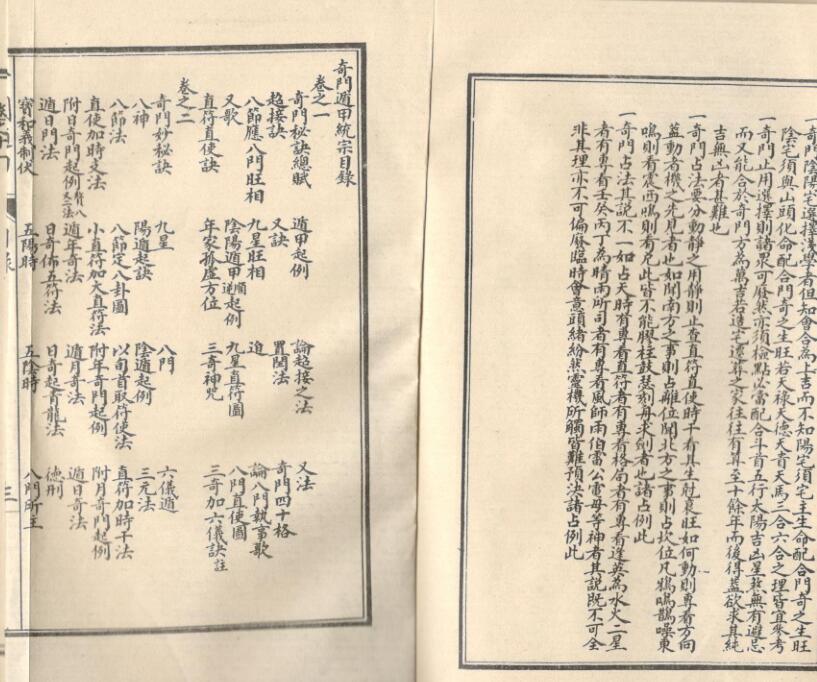 一奇門陰陽宅選擇淺學者但知會合為上吉而不知陽宅須宅主生命配合門奇之生旺
陰宅須與山頭化命配合門奇之生旺若天禄天德天貴天馬三合六合之理皆宜參考
一奇門止用選擇則諸眾可廢然亦須檢點必當配合斗首五行太陽吉凶星煞無有避忌
而又能合於奇門方為萬吉若造宅遷葬之家往往有算至十餘年而後得蓋欲求其純
吉無凶者甚難也
一奇門占法要分動靜之用靜則止查直符直使時干看其生尅衰旺如何動則專看方向
蓋動者機之先見者也如聞南方之事則占離位聞北方之事則占坎位凡鴉鳴鵲噪東
鳴則看震西鳴則看兌此皆不能膠柱鼓瑟刻舟求劍者也諸占例此
一奇門占法其說不一如占天時有專看直符者有專看格局者有專看蓬英為水火二星
者有專看壬癸丙丁為晴雨所司者有專看風師雨伯雷公電母等神者其說既不可全
非其理亦不可偏廢臨時會意頭緒紛然靈機所觸皆難預決諸占例此
奇門遁甲統宗目錄
卷之一
奇門秘訣總賦 遁甲起例 論超接之法 又法
超接訣 又訣 置閏法 奇門四十格
八節應八門旺相 九星旺相 論八門執事歌
又歌 陰陽遁甲順逆起例 九星直符圖 八門直使圖
直符直使訣 年家孤虛方位 三奇神咒 三奇加六儀訣註
卷之二
奇門妙秘訣 九星 八門 六儀遁
八神 陽遁起訣 陰遁起例 三元法
八節法 八節定八卦圖 以旬首取符使法 直符加時干法
直使加時支法 小直符加大直符法 附年奇門起例 附月奇門起例
附日奇門起例 遁年奇法 遁月奇法 遁日奇法
遁日門法 日奇佈五符法 日奇起青龍法 德刑
寶和義制伏 五陽時 五陰時 八門所主
三